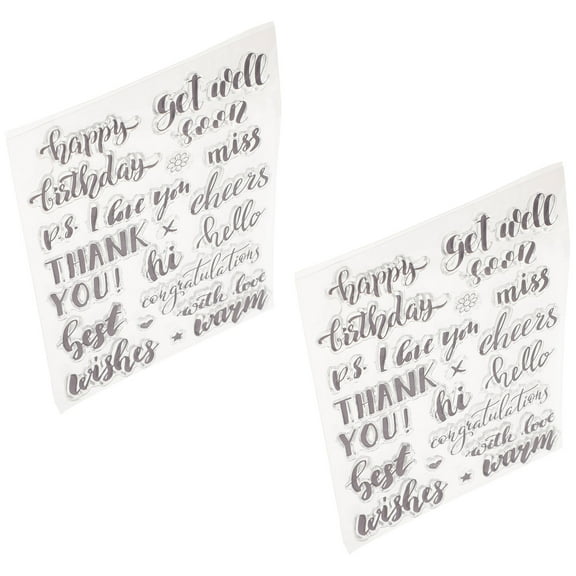 get well
soon
happy
birthday
miss
p.s. I love you
cheers
THANK
YOU!
x
hi
hello
congratulations
with love
warm
best
wishes
get well
soon
happy
birthday
miss
p.s. I love you
cheers
THANK
YOU!
x
hi
hello
congratulations
with love
warm
best
wishes